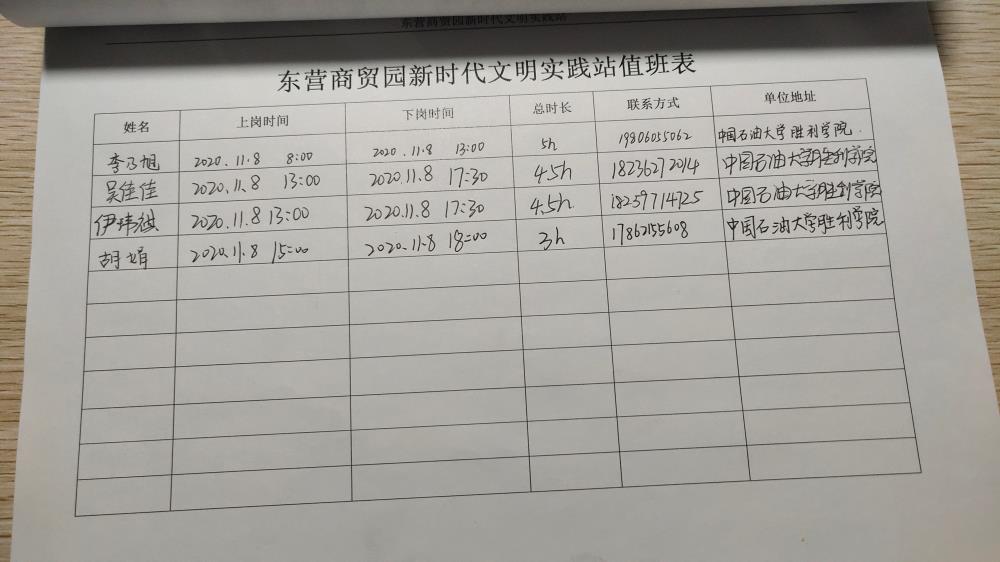 东营商贸园新时代文明实践站
东营商贸园新时代文明实践站值班表
姓名 上岗时间 下岗时间 总时长 联系方式 单位地址
李乃旭 2020.11.8 8:00 2020.11.8 13:00 5h 19806055062 中国石油大学胜利学院.
吴佳佳 2020.11.8 13:00 2020.11.8 17:30 4.5h 18236272014 中国石油大学胜利学院
伊玮祺 2020.11.8 13:00 2020.11.8 17:30 4.5h 18259714725 中国石油大学胜利学院
胡娟 2020.11.8 15:00 2020.11.8 18:00 3h 17862155608 中国石油大学胜利学院